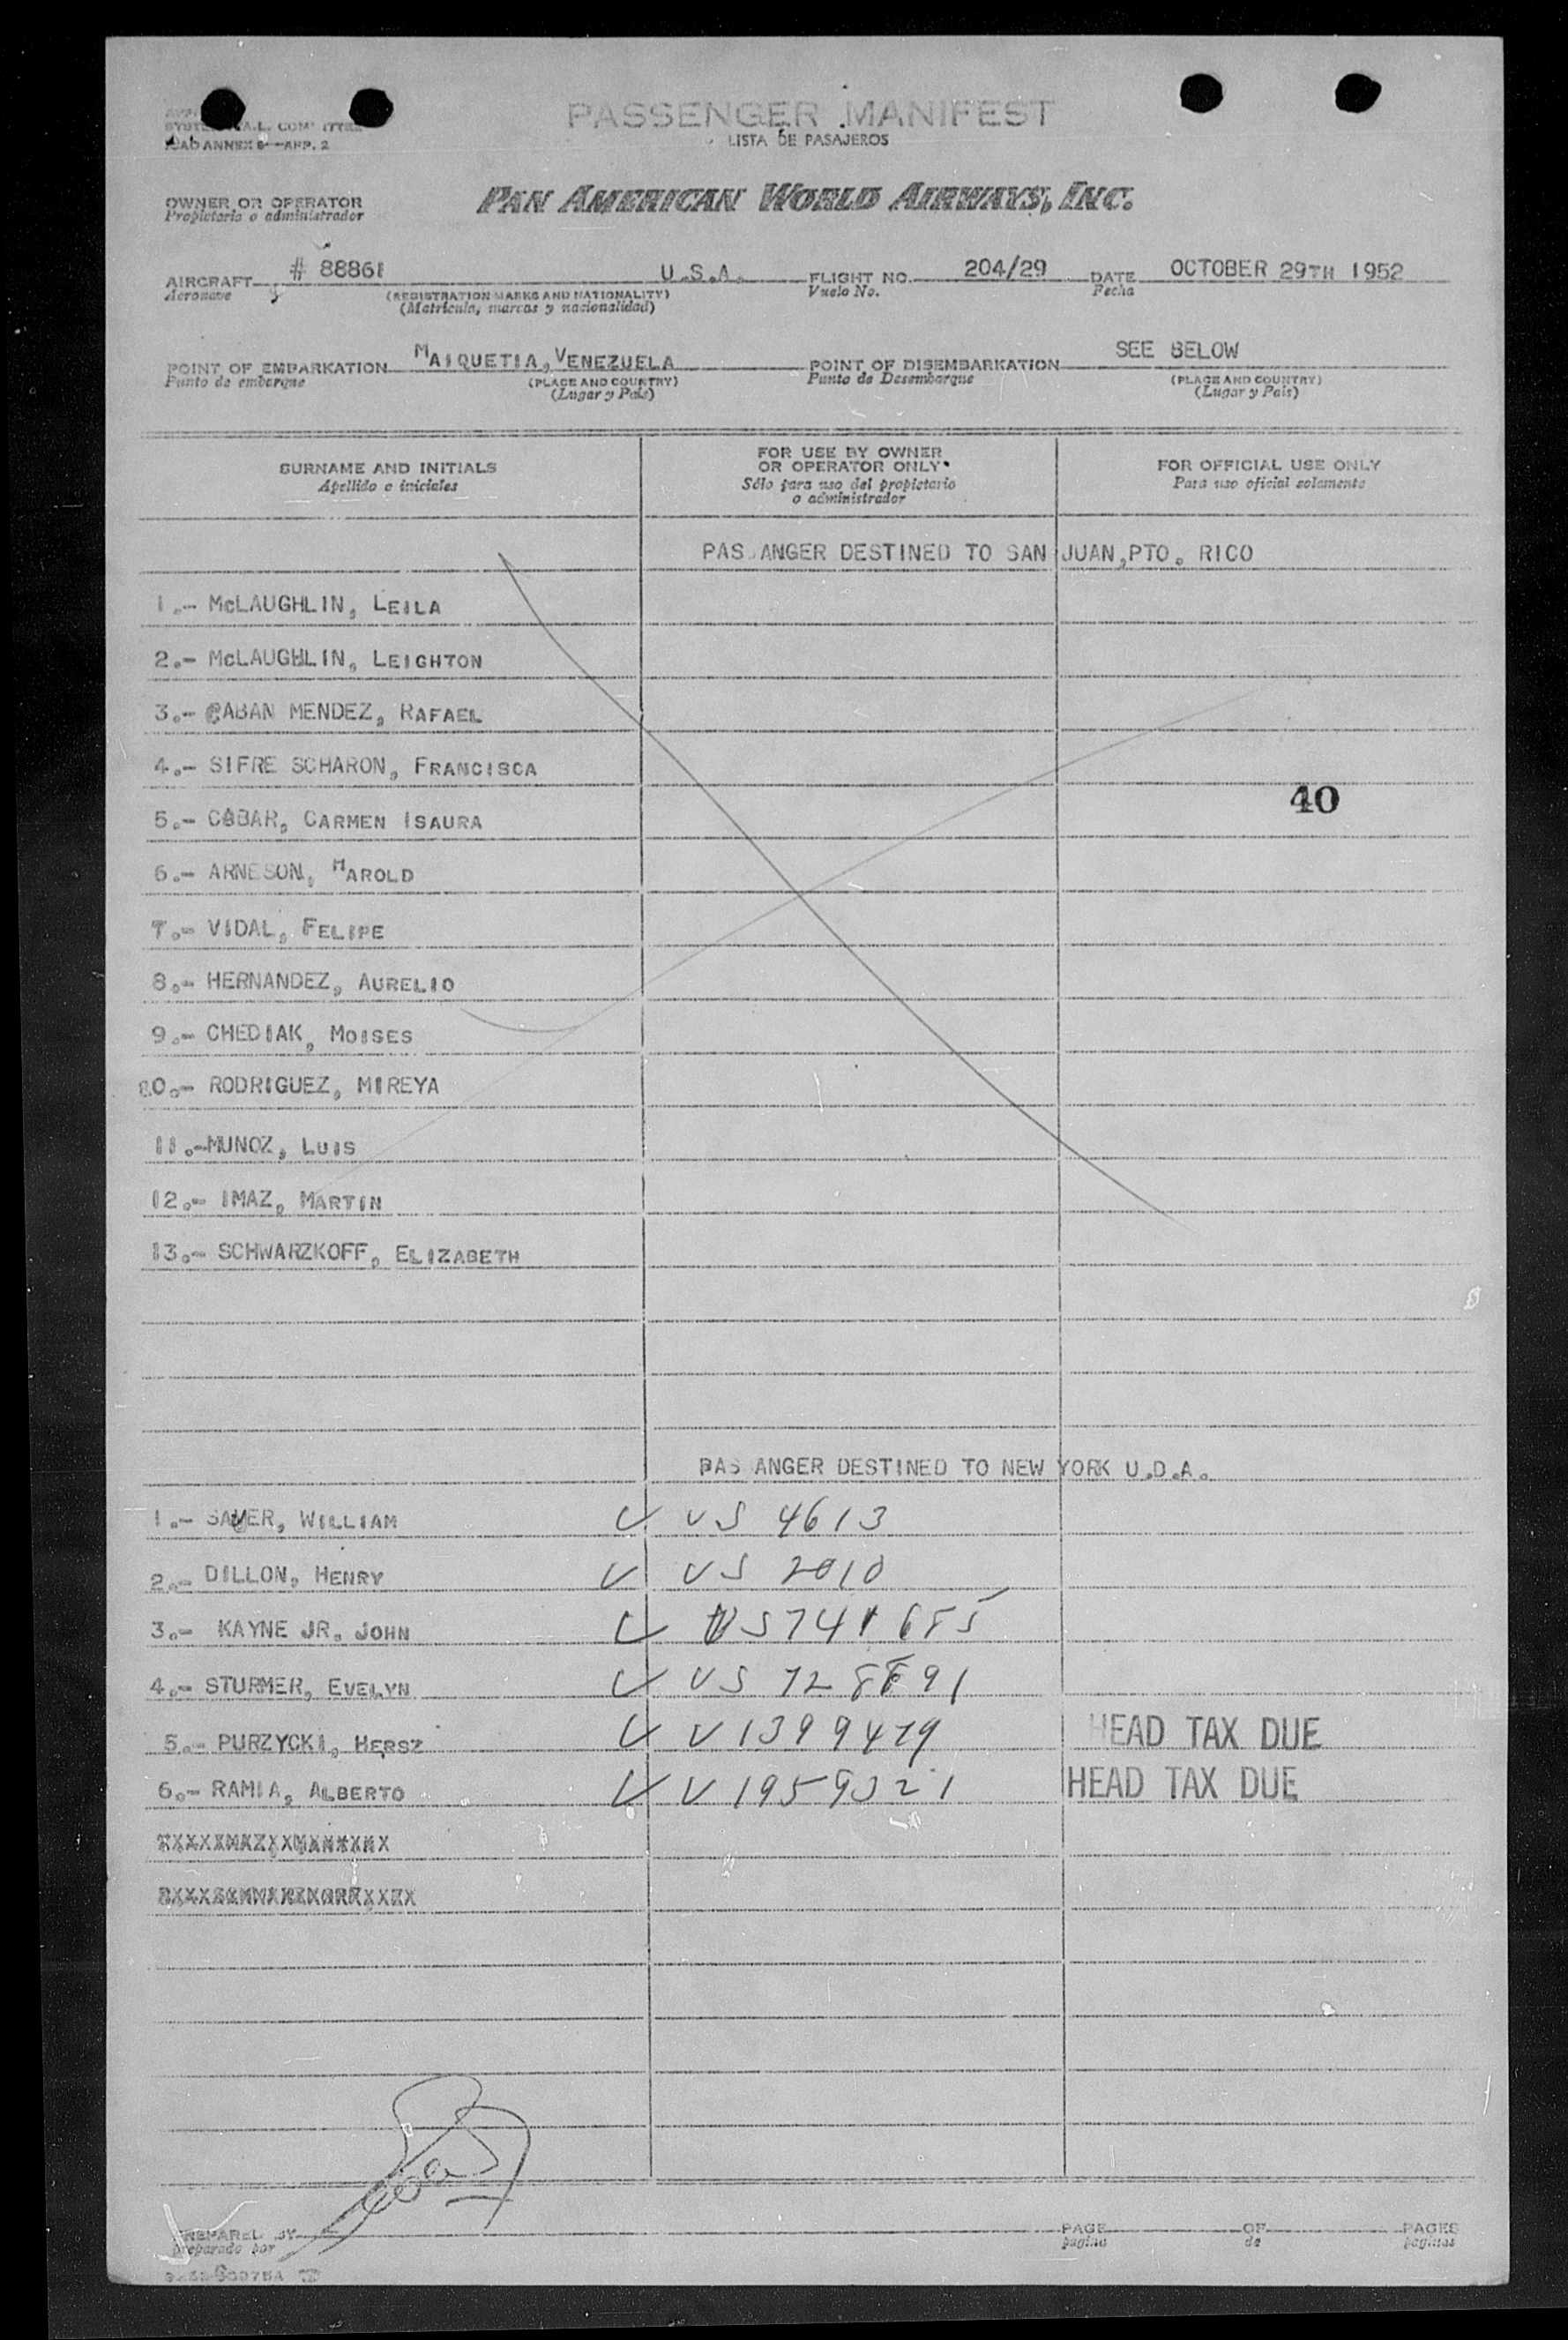 PASSENGER MANIFEST
LISTA DE PASAJEROS
ANNEX 9—APP. 2
OWNER OR OPERATOR
Propietario o administrador
PAN AMERICAN WORLD AIRWAYS, INC.
AIRCRAFT # 88861 U.S.A. FLIGHT NO. 204/29 DATE OCTOBER 29TH 1952
Aeronave (REGISTRATION MARKS AND NATIONALITY) Vuelo No. Fecha
(Matrícula, marcas y nacionalidad)
POINT OF EMBARKATION MAIQUETIA, VENEZUELA POINT OF DISEMBARKATION SEE BELOW
Punto de embarque (PLACE AND COUNTRY) Punto de Desembarque (PLACE AND COUNTRY)
(Lugar y País) (Lugar y País)
SURNAME AND INITIALS
Apellido e iniciales
FOR USE BY OWNER
OR OPERATOR ONLY
Sólo para uso del propietario
o administrador
FOR OFFICIAL USE ONLY
Para uso oficial solamente
PAS ANGER DESTINED TO SAN JUAN, PTO. RICO
1.- McLAUGHLIN, LEILA
2.- McLAUGHLIN, LEIGHTON
3.- CABAN MENDEZ, RAFAEL
4.- SIFRE SCHARON, FRANCISCA
40
5.- CABAR, CARMEN ISAURA
6.- ARNESON, HAROLD
7.- VIDAL, FELIPE
8.- HERNANDEZ, AURELIO
9.- CHEDIAK, MOISES
10.- RODRIGUEZ, MIREYA
11.- MUNOZ, LUIS
12.- IMAZ, MARTIN
13.- SCHWARZKOFF, ELIZABETH
PAS ANGER DESTINED TO NEW YORK U.D.A.
1.- SAUER, WILLIAM US 4613
2.- DILLON, HENRY US 2010
3.- KAYNE JR, JOHN US 741685
4.- STURMER, EVELYN US 728891
5.- PURZYCKI, HERSZ V 1399479 HEAD TAX DUE
6.- RAMIA, ALBERTO V 1959321 HEAD TAX DUE
PREPARED BY PAGE OF PAGES
preparado por pagina de paginas